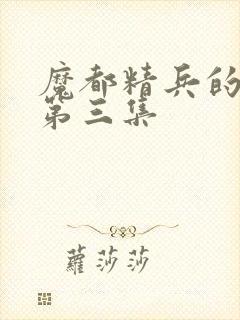 魔都精兵的
第三集
蘿莎莎